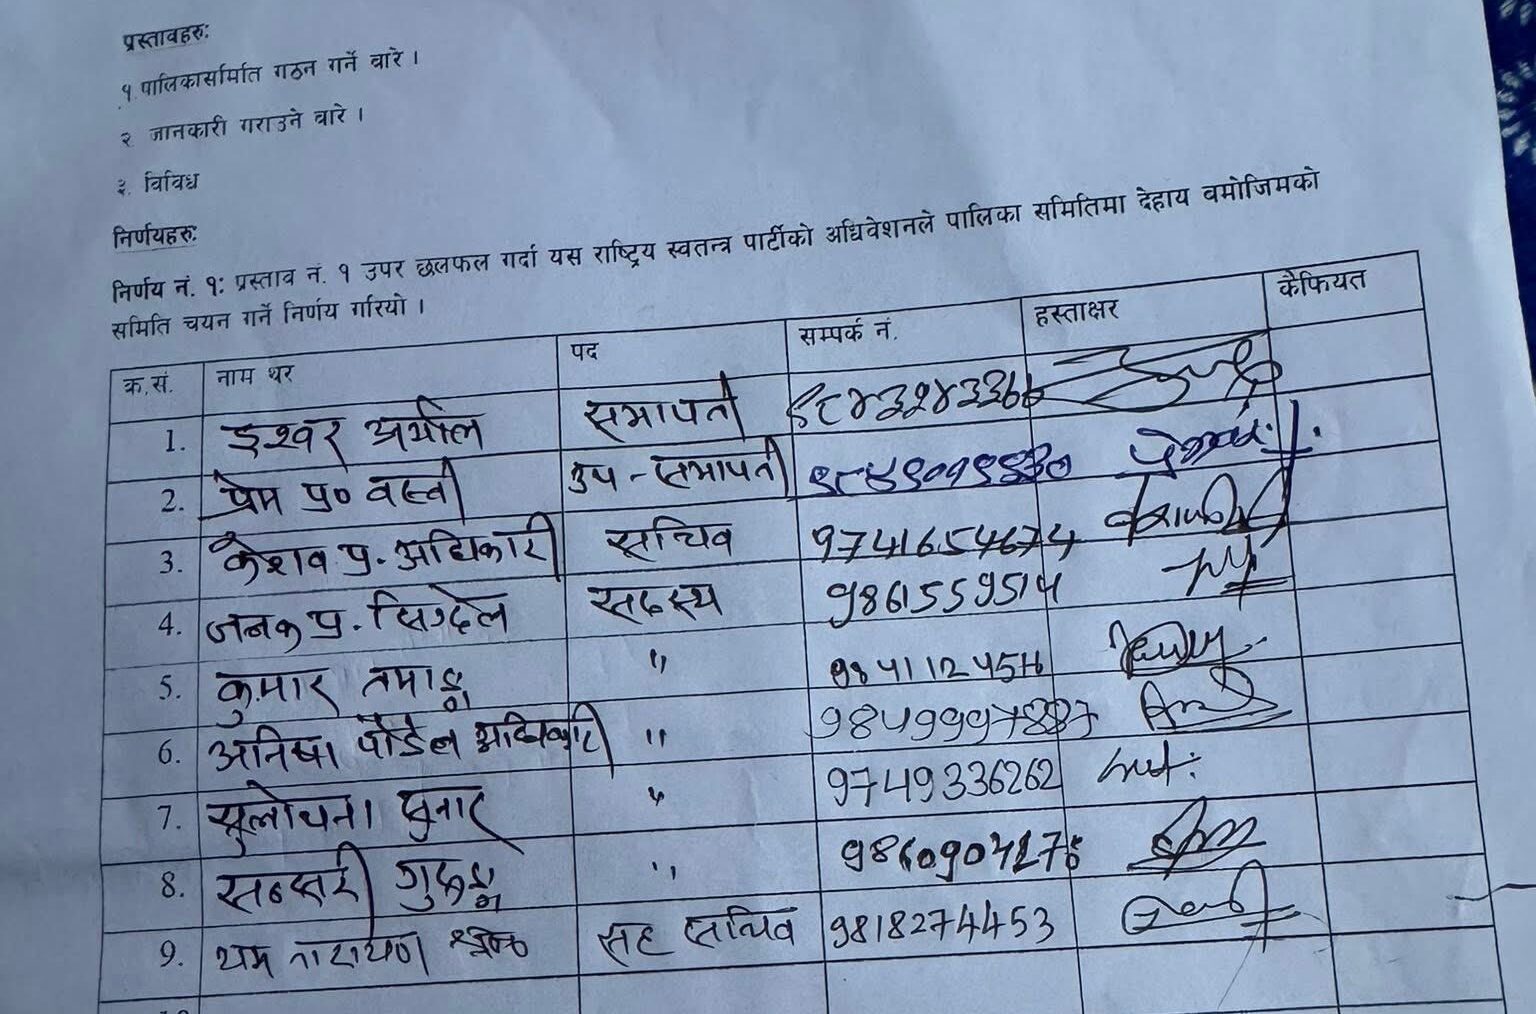 प्रस्तावहरु:
१.पालिकासमिति गठन गर्ने बारे ।
२. जानकारी गराउने बारे ।
३. विविध
निर्णयहरु:
निर्णय नं. १: प्रस्ताव नं. १ उपर छलफल गर्दा यस राष्ट्रिय स्वतन्त्र पार्टीको अधिवेशनले पालिका समितिमा देहाय बमोजिमको
समिति चयन गर्ने निर्णय गरियो ।
क.सं. नाम थर पद सम्पर्क नं. हस्ताक्षर कैफियत
1. ईश्वर अर्याल सभापती
2. प्रेम प्र० वस्ती उप-सभापती
3. केशव प्र. अधिकारी सचिव 9741654674
4. जनक प्र. सिग्देल सदस्य 9861559514
5. कुमार तमाङ्ग " 9841124576
6. अनिषा पौडेल अधिकारी "
7. सुलोचना सुनार " 9749336262
8. गुरुङ्ग "
9. यम नारायण सह सचिव 9818274453